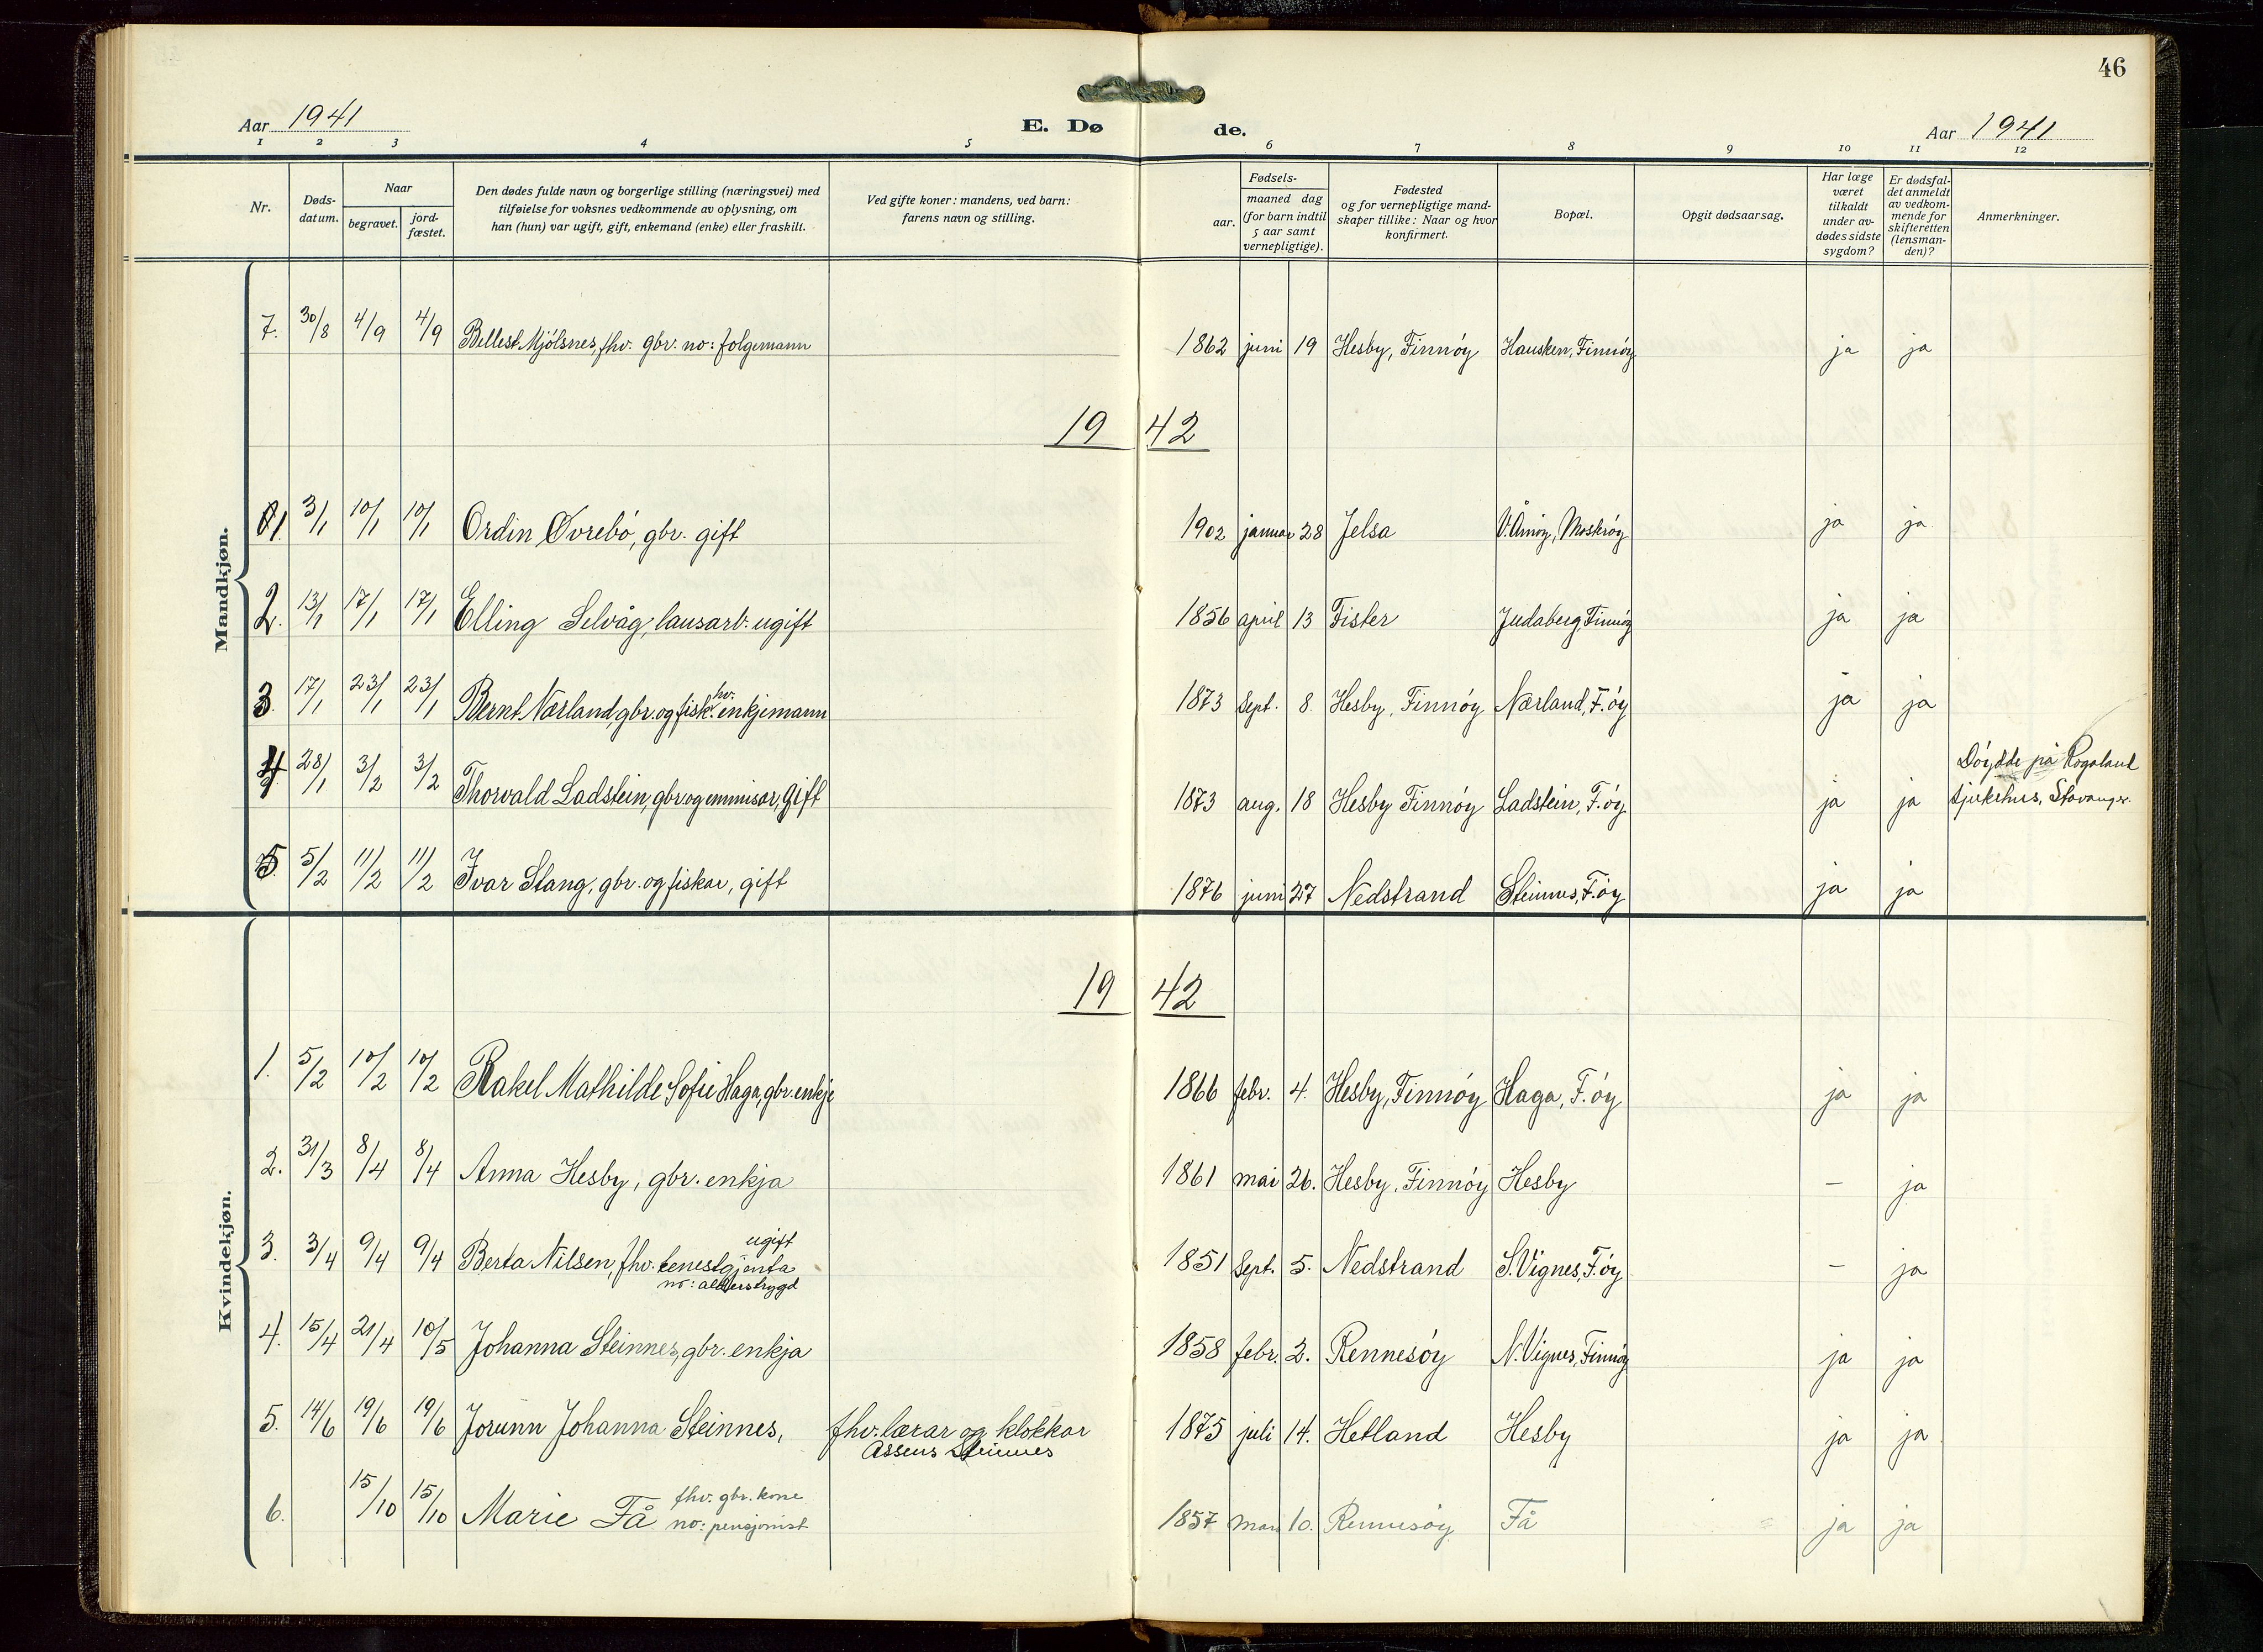 46
Aar 1941
E. Dø
de.
Aar 1941
1 2 3 4 5 6 7 8 9 10 11 12
Nr.
Døds-
datum.
Naar
begravet.
jord-
fæstet.
Den dødes fulde navn og borgerlige stilling (næringsvei) med
tilføielse for voksnes vedkommende av oplysning, om
han (hun) var ugift, gift, enkemand (enke) eller fraskilt.
Ved gifte koner: mandens, ved barn:
farens navn og stilling.
Fødsels-
aar.
maaned dag
(for barn indtil
5 aar samt
vernepligtige).
Fødested
og for vernepligtige mand-
skaper tillike: Naar og hvor
konfirmert.
Bopæl.
Opgit dødsaarsag.
Har læge
været
tilkaldt
under av-
dødes sidste
sygdom?
Er dødsfal-
det anmeldt
av vedkom-
mende for
skifteretten
(lensman-
den)?
Anmerkninger.
Mandkjøn.
7. 30/8 4/9 4/9 Bellest Mjölsnes, fhv. gbr. no: folgemann 1862 juni 19 Hesby, Finnöy Hausken, Finnöy ja ja
19 42
1. 3/1 10/1 10/1 Ordin Øvrebö, gbr. gift 1902 januar 28 Jelsa V. Åmöy, Mosteröy ja ja
2. 13/1 17/1 17/1 Elling Selvåg, lausarb. ugift 1856 april 13 Fister Judaberg, Finnöy ja ja
3. 17/1 23/1 23/1 Bernt Nærland gbr. og fisk. fhv. enkjemann 1873 Sept. 8 Hesby, Finnöy Nærland, F.öy ja ja
4. 28/1 3/2 3/2 Thorvald Ladstein, gbr. og emmisær, gift 1873 aug. 18 Hesby Finnöy Ladstein, F.öy ja ja Döydde på Rogaland
sjukehus, Stavanger.
5. 5/2 11/2 11/2 Ivar Stang, gbr. og fiskar, gift 1876 juni 27 Nedstrand Steinnes, F.öy ja ja
Kvindekjøn.
19 42
1. 5/2 10/2 10/2 Rakel Mathilde Sofie Haga, gbr. enkje 1866 febr. 4. Hesby, Finnöy Haga, F.öy ja ja
2. 31/3 8/4 8/4 Anna Hesby, gbr. enkja 1861 mai 26. Hesby, Finnöy Hesby – ja
ugift
3. 3/4 9/4 9/4 Berta Nilsen, fhv. tenestgjenta 1851 Sept. 5. Nedstrand S. Vignes, F.öy – ja
no: alderstrygd
4. 15/4 21/4 10/5 Johanna Steinnes, gbr. enkja 1858 febr. 2. Rennesöy N. Vignes, Finnöy ja ja
5. 14/6 19/6 19/6 Jorunn Johanna Steinnes, fhv. lærar og klokkar 1875 juli 14. Hetland Hesby ja ja
Assens Steinnes
fhv. gbr. kone
6. 15/10 15/10 Marie Få no: pensjonist 1857 mars 10. Rennesöy Få ja ja